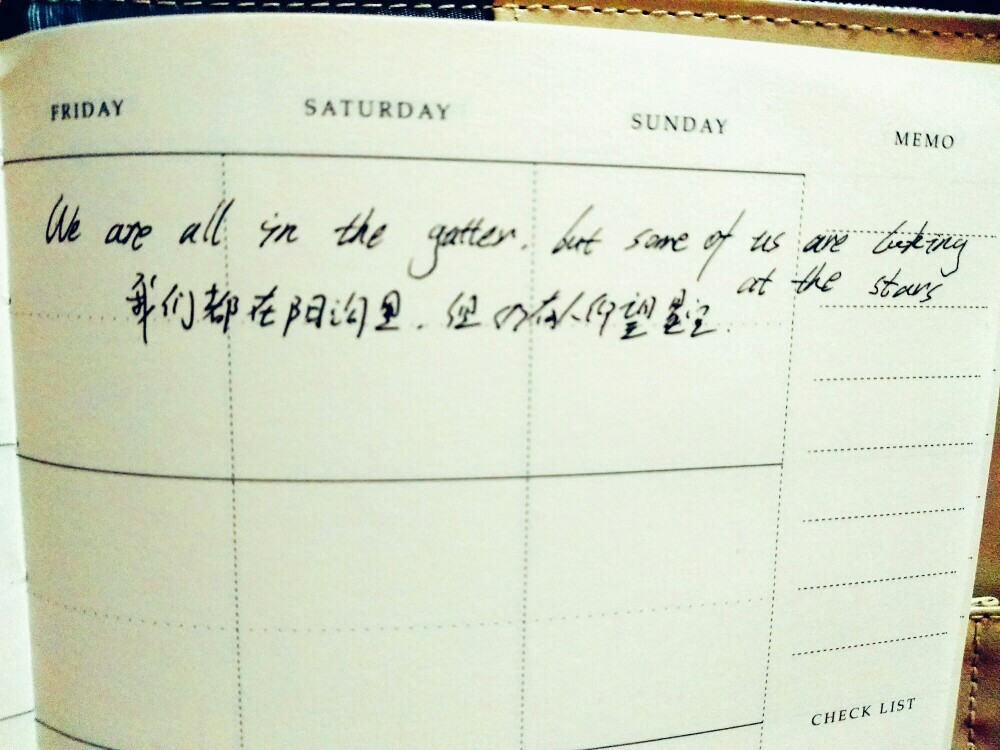 FRIDAY SATURDAY SUNDAY MEMO
We are all in the gutter, but some of us are looking
at the stars
我们都在阴沟里，但仍有人仰望星空.
CHECK LIST